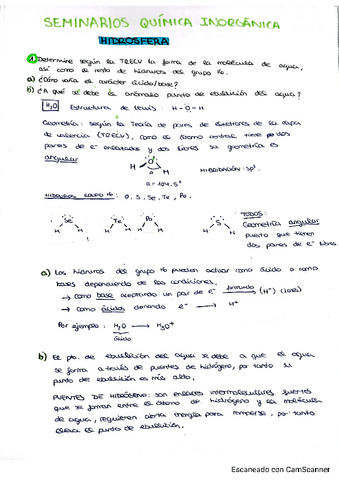 SEMINARIOS QUÍMICA INORGÁNICA
HIDROSFERA
1) Determine según la TRECV la forma de la molécula de agua,
así como el resto de hidruros del grupo 16.
a) ¿Cómo varía el carácter ácido/base?
b) ¿A qué se debe el anómalo punto de ebullición del agua?
H₂O Estructura de Lewis: H - O - H
Geometría: según la Teoría de pares de electrones de la capa
de valencia (TRECV), como el átomo central tiene dos
pares de e⁻ enlazados y dos libres su geometría es
angular
O
H H
HIBRIDACIÓN: sp³
α = 104.5°
HIDRUROS GRUPO 16: O, S, Se, Te, Po.
Se Te Po S
H H H H H H H H
TODOS:
Geometría angular
puesto que tienen
dos pares de e⁻ libres
a) Los hidruros del grupo 16 pueden actuar como ácido o como
bases dependiendo de las condiciones.
→ como base aceptando un par de e⁻ (H⁺)
→ como ácidos donando e⁻ → H⁺
Por ejemplo: H₂O → H₃O⁺
ácido
b) El pto. de ebullición del agua se debe a que el agua
se forma a través de puentes de hidrógeno, por tanto su
punto de ebullición es más alto.
PUENTES DE HIDRÓGENO: son enlaces intermoleculares fuertes
que se forman entre el átomo de hidrógeno y la molécula
de agua, requieren cierta energía para romperse, por tanto
eleva el punto de ebullición.
Escaneado con CamScanner